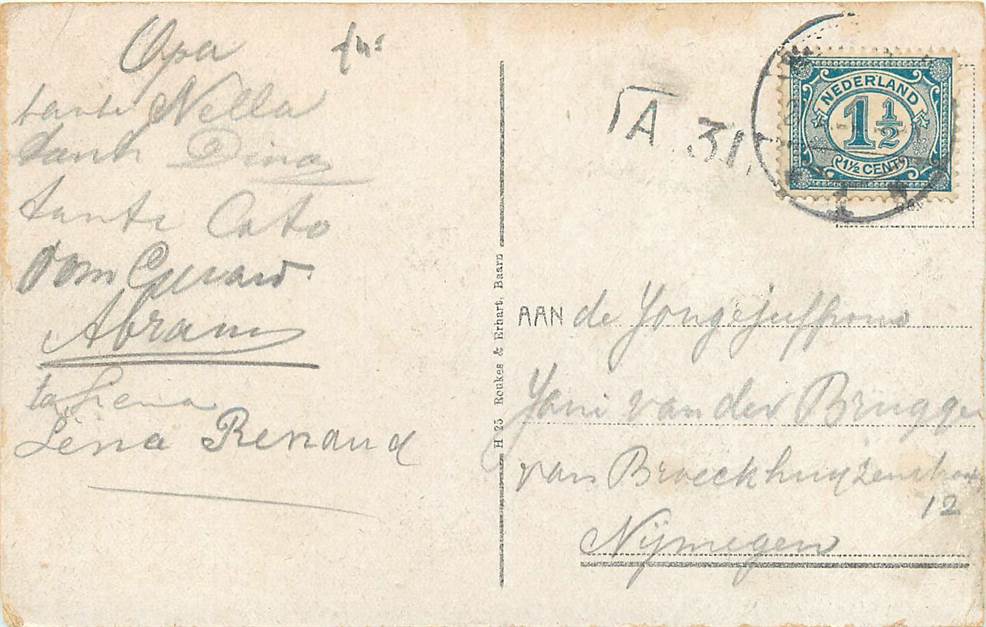 Opa
tante Nella
tante Dina
tante Cato
oom Gerard
Abram
ta Lena
Lena Renaud
H 25 Roukes & Erhart, Baarn
A 31
NEDERLAND
1½
1½ CENT
AAN de Jongejuffrouw
Jani van der Brugge
van Broeckhuyzenstraat
12
Nijmegen